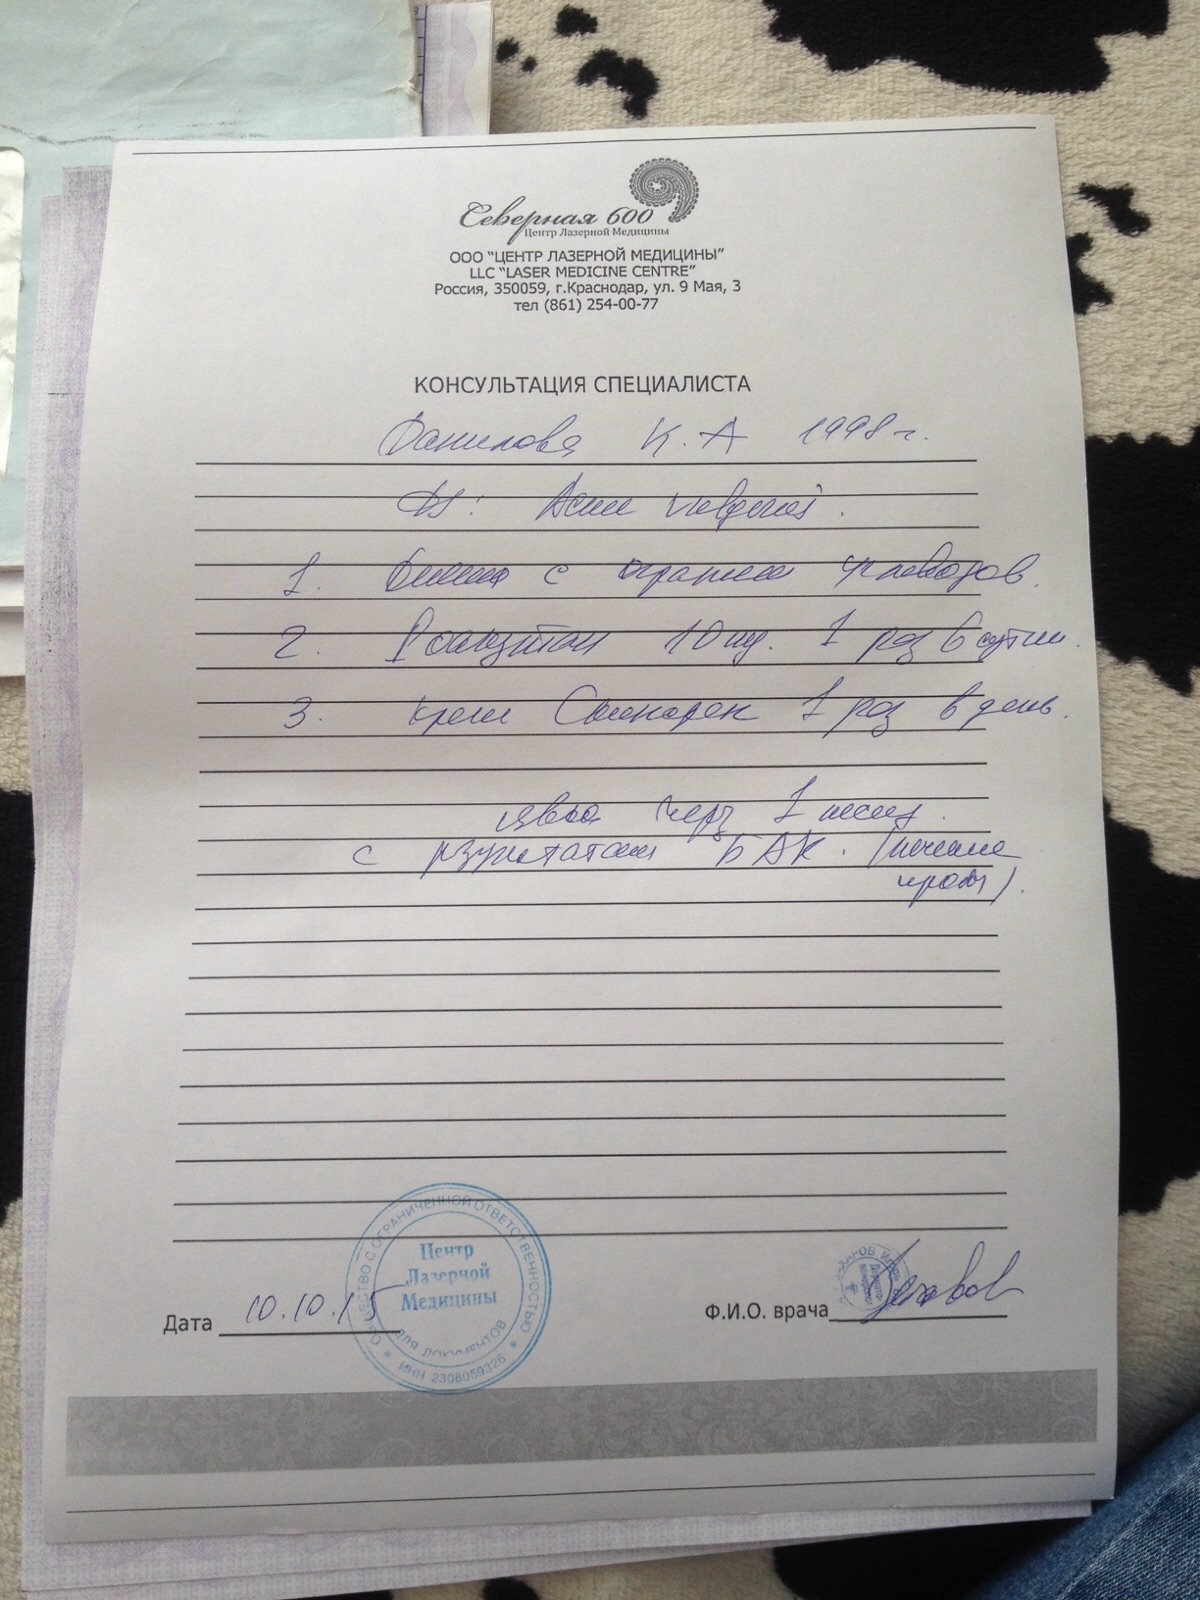 Северная 600
Центр Лазерной Медицины
ООО "ЦЕНТР ЛАЗЕРНОЙ МЕДИЦИНЫ"
LLC "LASER MEDICINE CENTRE"
Россия, 350059, г.Краснодар, ул. 9 Мая, 3
тел (861) 254-00-77
КОНСУЛЬТАЦИЯ СПЕЦИАЛИСТА
Данилова К.А 1998г.
Ds: Acne vulgaris.
1. с углеводов.
2. Роаккутан 10 мг. 1 раз в сутки.
3. крем Скинорен 1 раз в день.
явка через 1 месяц.
с результатами БАК. (печеные
пробы).
ОБЩЕСТВО С ОГРАНИЧЕННОЙ ОТВЕТСТВЕННОСТЬЮ
Центр
Лазерной
Медицины
ДЛЯ ДОКУМЕНТОВ
* ИНН 2308059326 *
Дата 10.10.15
Ф.И.О. врача